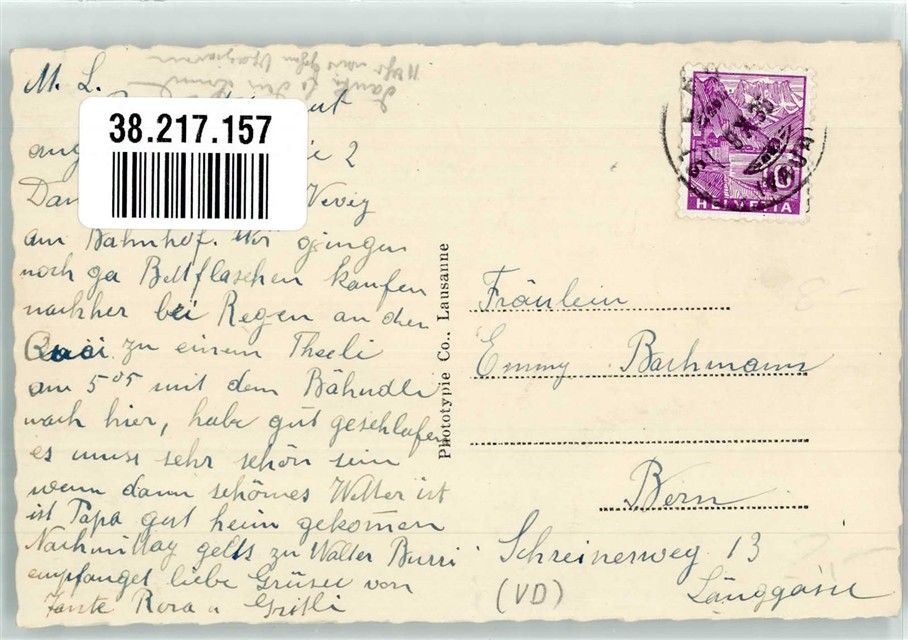 M. L.
38.217.157
2
Vevey
am Bahnhof. Wir gingen
noch ga Bettflaschen kaufen
nachher bei Regen an den
zu einem Theeli
um 5 05 mit dem Bähndli
nach hier, habe gut geschlafen
es muss sehr schön sein
wenn dann schönes Wetter ist
ist Papa gut heim gekommen
Nachmittag gehts zu Walter Burri
empfanget liebe Grüsse von
Tante Rosa u Gritli
Phototypie Co., Lausanne
HELVETIA
Fräulein
Emmy Bachmann
Bern
Schreinerweg 13
Länggasse
(VD)